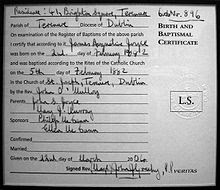 Residence: 41 Brighton Square, Terenure
Birth No. 896
Parish of Terenure Diocese of Dublin
BIRTH AND
BAPTISMAL
CERTIFICATE
On examination of the Register of Baptisms of the above parish
I certify that according to it James Augustine Joyce
was born on the 2nd day of February 1882
and was baptised according to the Rites of the Catholic Church
on the 5th day of February 1882
in the Church of St. Joseph, Terenure, Dublin
by the Rev. John O' Mulloy
Parents John S. Joyce
Mary J. Murray
Sponsors Philip McCann
Ellen McCann
L.S.
Confirmed
Married
Given on the day of March 2004
Signed Rev. P.P.